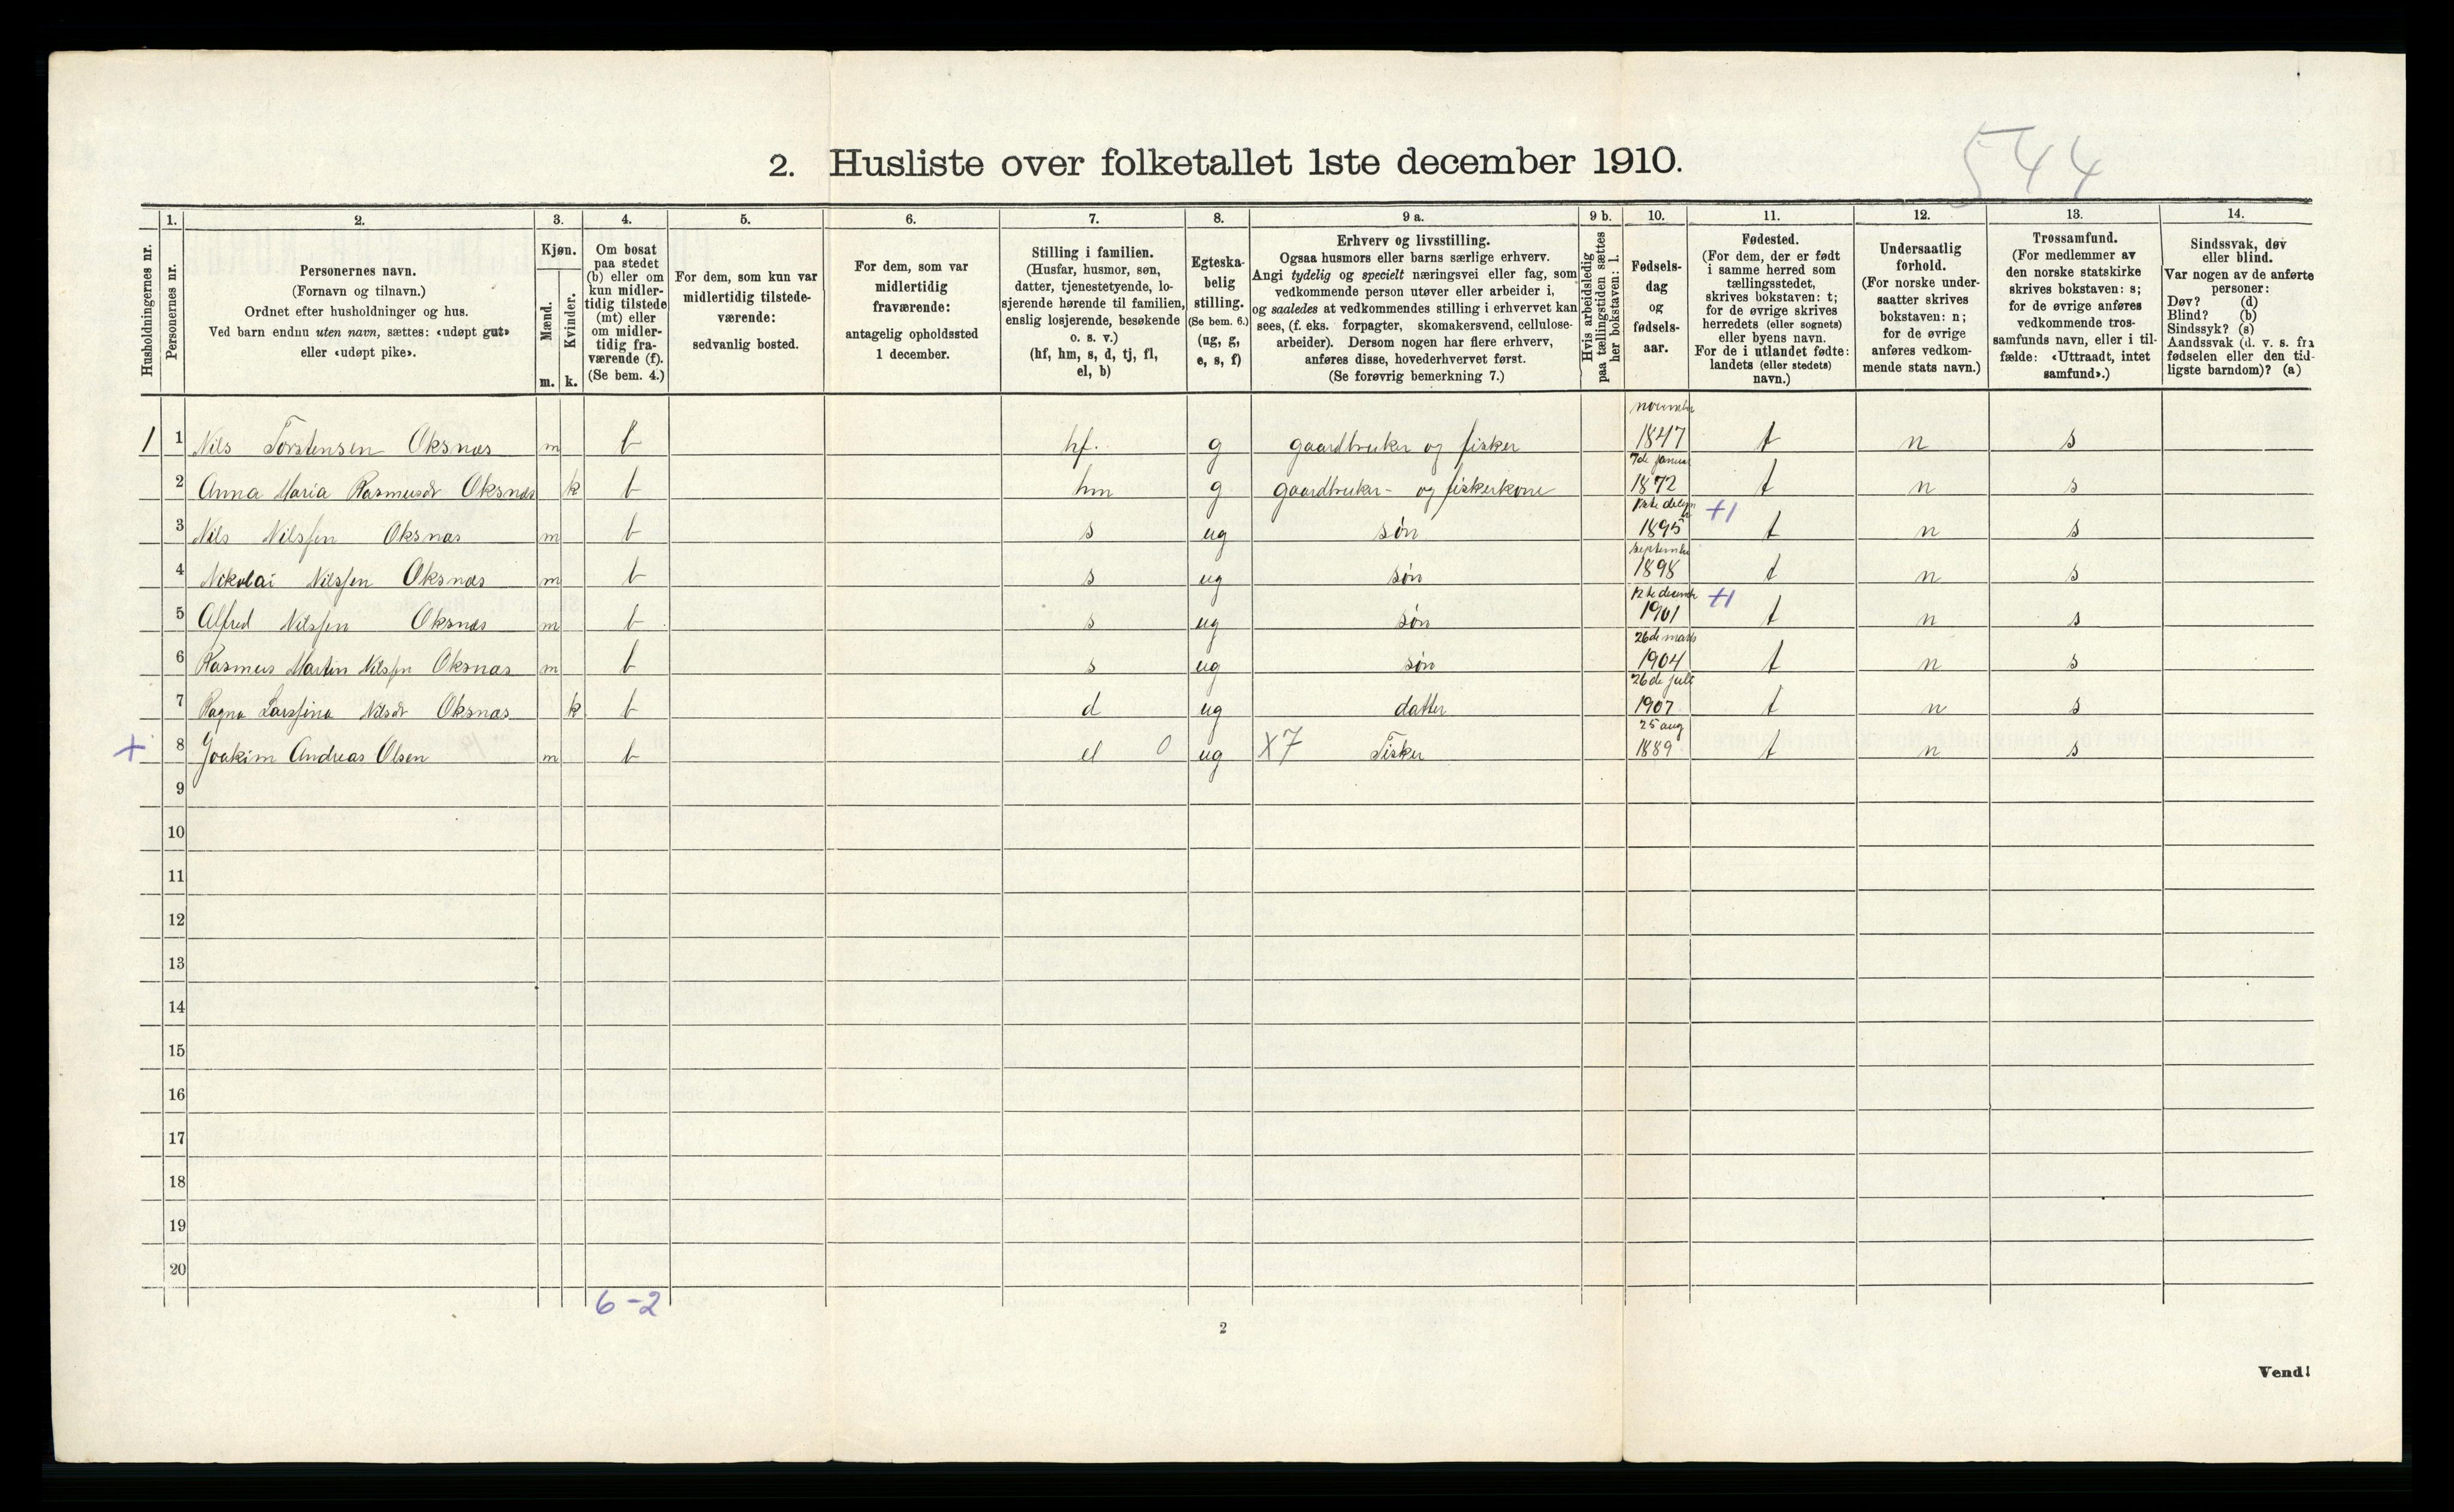 544
2. Husliste over folketallet 1ste december 1910.
Husholdningernes nr.
1.
Personernes nr.
2.
Personernes navn.
(Fornavn og tilnavn.)
Ordnet efter husholdninger og hus.
Ved barn endnu uten navn, sættes: «udøpt gut»
eller «udøpt pike».
3.
Kjøn.
Mænd.
Kvinder.
m. k.
4.
Om bosat
paa stedet
(b) eller om
kun midler-
tidig tilstede
(mt) eller
om midler-
tidig fra-
værende (f).
(Se bem. 4.)
5.
For dem, som kun var
midlertidig tilstede-
værende:
sedvanlig bosted.
6.
For dem, som var
midlertidig
fraværende:
antagelig opholdssted
1 december.
7.
Stilling i familien.
(Husfar, husmor, søn,
datter, tjenestetyende, lo-
sjerende hørende til familien,
enslig losjerende, besøkende
o. s. v.)
(hf, hm, s, d, tj, fl,
el, b)
8.
Egteska-
belig
stilling.
(Se bem. 6.)
(ug, g,
e, s, f)
9 a.
Erhverv og livsstilling.
Ogsaa husmors eller barns særlige erhverv.
Angi tydelig og specielt næringsvei eller fag, som
vedkommende person utøver eller arbeider i,
og saaledes at vedkommendes stilling i erhvervet kan
sees, (f. eks. forpagter, skomakersvend, cellulose-
arbeider). Dersom nogen har flere erhverv,
anføres disse, hovederhvervet først.
(Se forøvrig bemerkning 7.)
9 b.
Hvis arbeidsledig
paa tællingstiden sættes
her bokstaven: l.
10.
Fødsels-
dag
og
fødsels-
aar.
11.
Fødested.
(For dem, der er født
i samme herred som
tællingsstedet,
skrives bokstaven: t;
for de øvrige skrives
herredets (eller sognets)
eller byens navn.
For de i utlandet fødte:
landets (eller stedets)
navn.)
12.
Undersaatlig
forhold.
(For norske under-
saatter skrives
bokstaven: n;
for de øvrige
anføres vedkom-
mende stats navn.)
13.
Trossamfund.
(For medlemmer av
den norske statskirke
skrives bokstaven: s;
for de øvrige anføres
vedkommende tros-
samfunds navn, eller i til-
fælde: «Uttraadt, intet
samfund».)
14.
Sindssvak, døv
eller blind.
Var nogen av de anførte
personer:
Døv? (d)
Blind? (b)
Sindssyk? (s)
Aandssvak (d. v. s. fra
fødselen eller den tid-
ligste barndom)? (a)
1 1 Nils Torstensen Oksnas m b hf. g gaardbruker og fisker 1847 t n s
2 Anna Maria Rasmusdr Oksnas k b hm g gaardbruker- og fiskerkone 7de januar 1872 t n s
3 Nils Nilssen Oksnas m b s ug søn 1895 +1 t n s
4 Nikolai Nilssen Oksnas m b s ug søn september 1898 t n s
5 Alfred Nilssen Oksnas m b s ug søn 12te decembr 1901 +1 t n s
6 Rasmus Martin Nilssen Oksnas m b s ug søn 26de mars 1904 t n s
7 Ragna Larssina Nilsdr Oksnas k b d ug datter 26de juli 1907 t n s
+ 8 Joakim Andreas Olsen m b el 0 ug X7 Fisker 25 aug 1889 t n s
9
10
11
12
13
14
15
16
17
18
19
20
6-2
2
Vend!